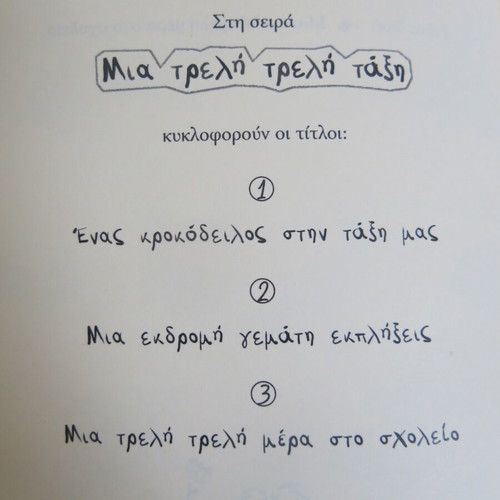 Στη σειρά
Μια τρελή τρελή τάξη
κυκλοφορούν οι τίτλοι:
1
Ένας κροκόδειλος στην τάξη μας
2
Μια εκδρομή γεμάτη εκπλήξεις
3
Μια τρελή τρελή μέρα στο σχολείο